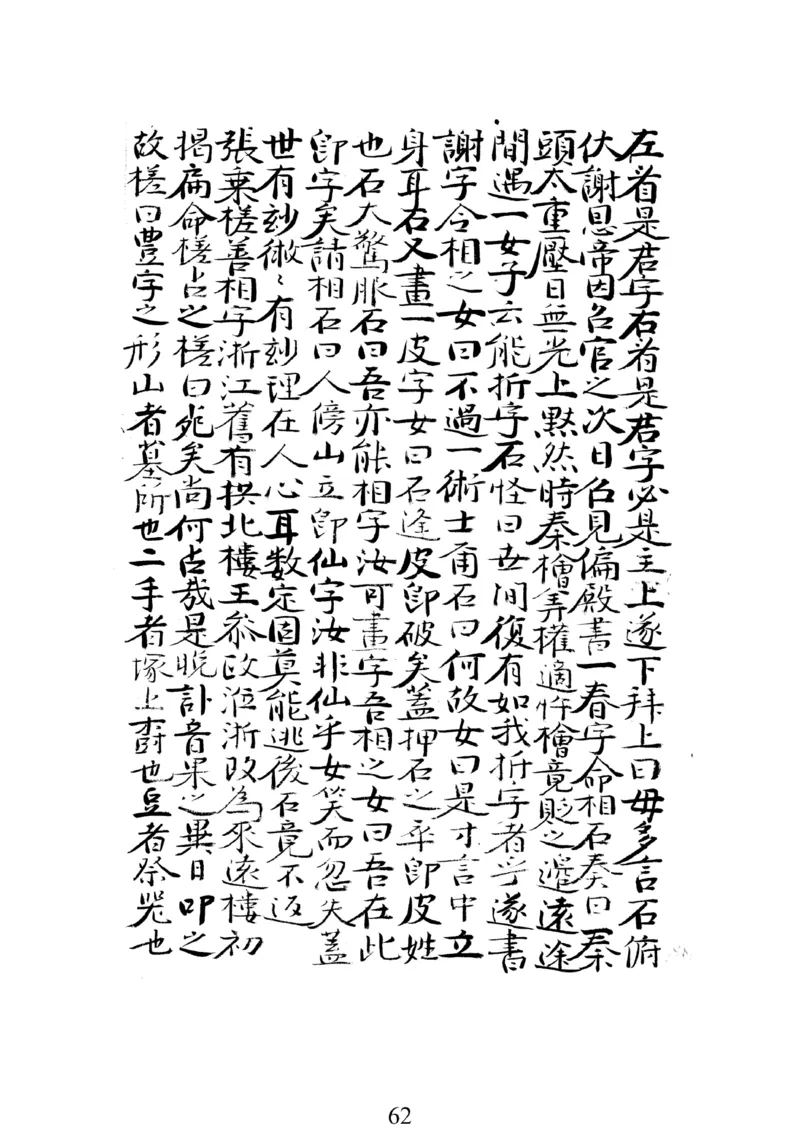 左看是君字右看是君字必是主上遂下拜上曰毋多言石俯
伏謝恩帝因召官之次日召見偏殿書一春字命相石奏曰秦
頭太重壓日無光上黙然時秦檜弄權適忤檜竟貶之邊遠途
間遇一女子云能拆字石怪曰世间復有如我拆字者乎遂書
謝字令相之女曰不過一術士甭石曰何故女曰是寸言中立
身耳石又畫一皮字女曰石逢皮卽破矣蓋押石之卒卽皮姓
也石大驚服石曰吾亦能相字汝可畫字吾相之女曰吾在此
卽字矣請相石曰人傍山立卽仙字汝非仙乎女笑而忽失蓋
世有玅術〻有玅理在人心耳数定固莫能逃後石竟不返
張乗槎善相字浙江舊有拱北樓王叅政涖浙改為来遠樓初
揭扁命槎占之槎曰兆矣尚何占哉是晩訃音果之異日叩之
故槎曰豊字之形山者墓所也二手者塚上樹也豆者祭器也
62